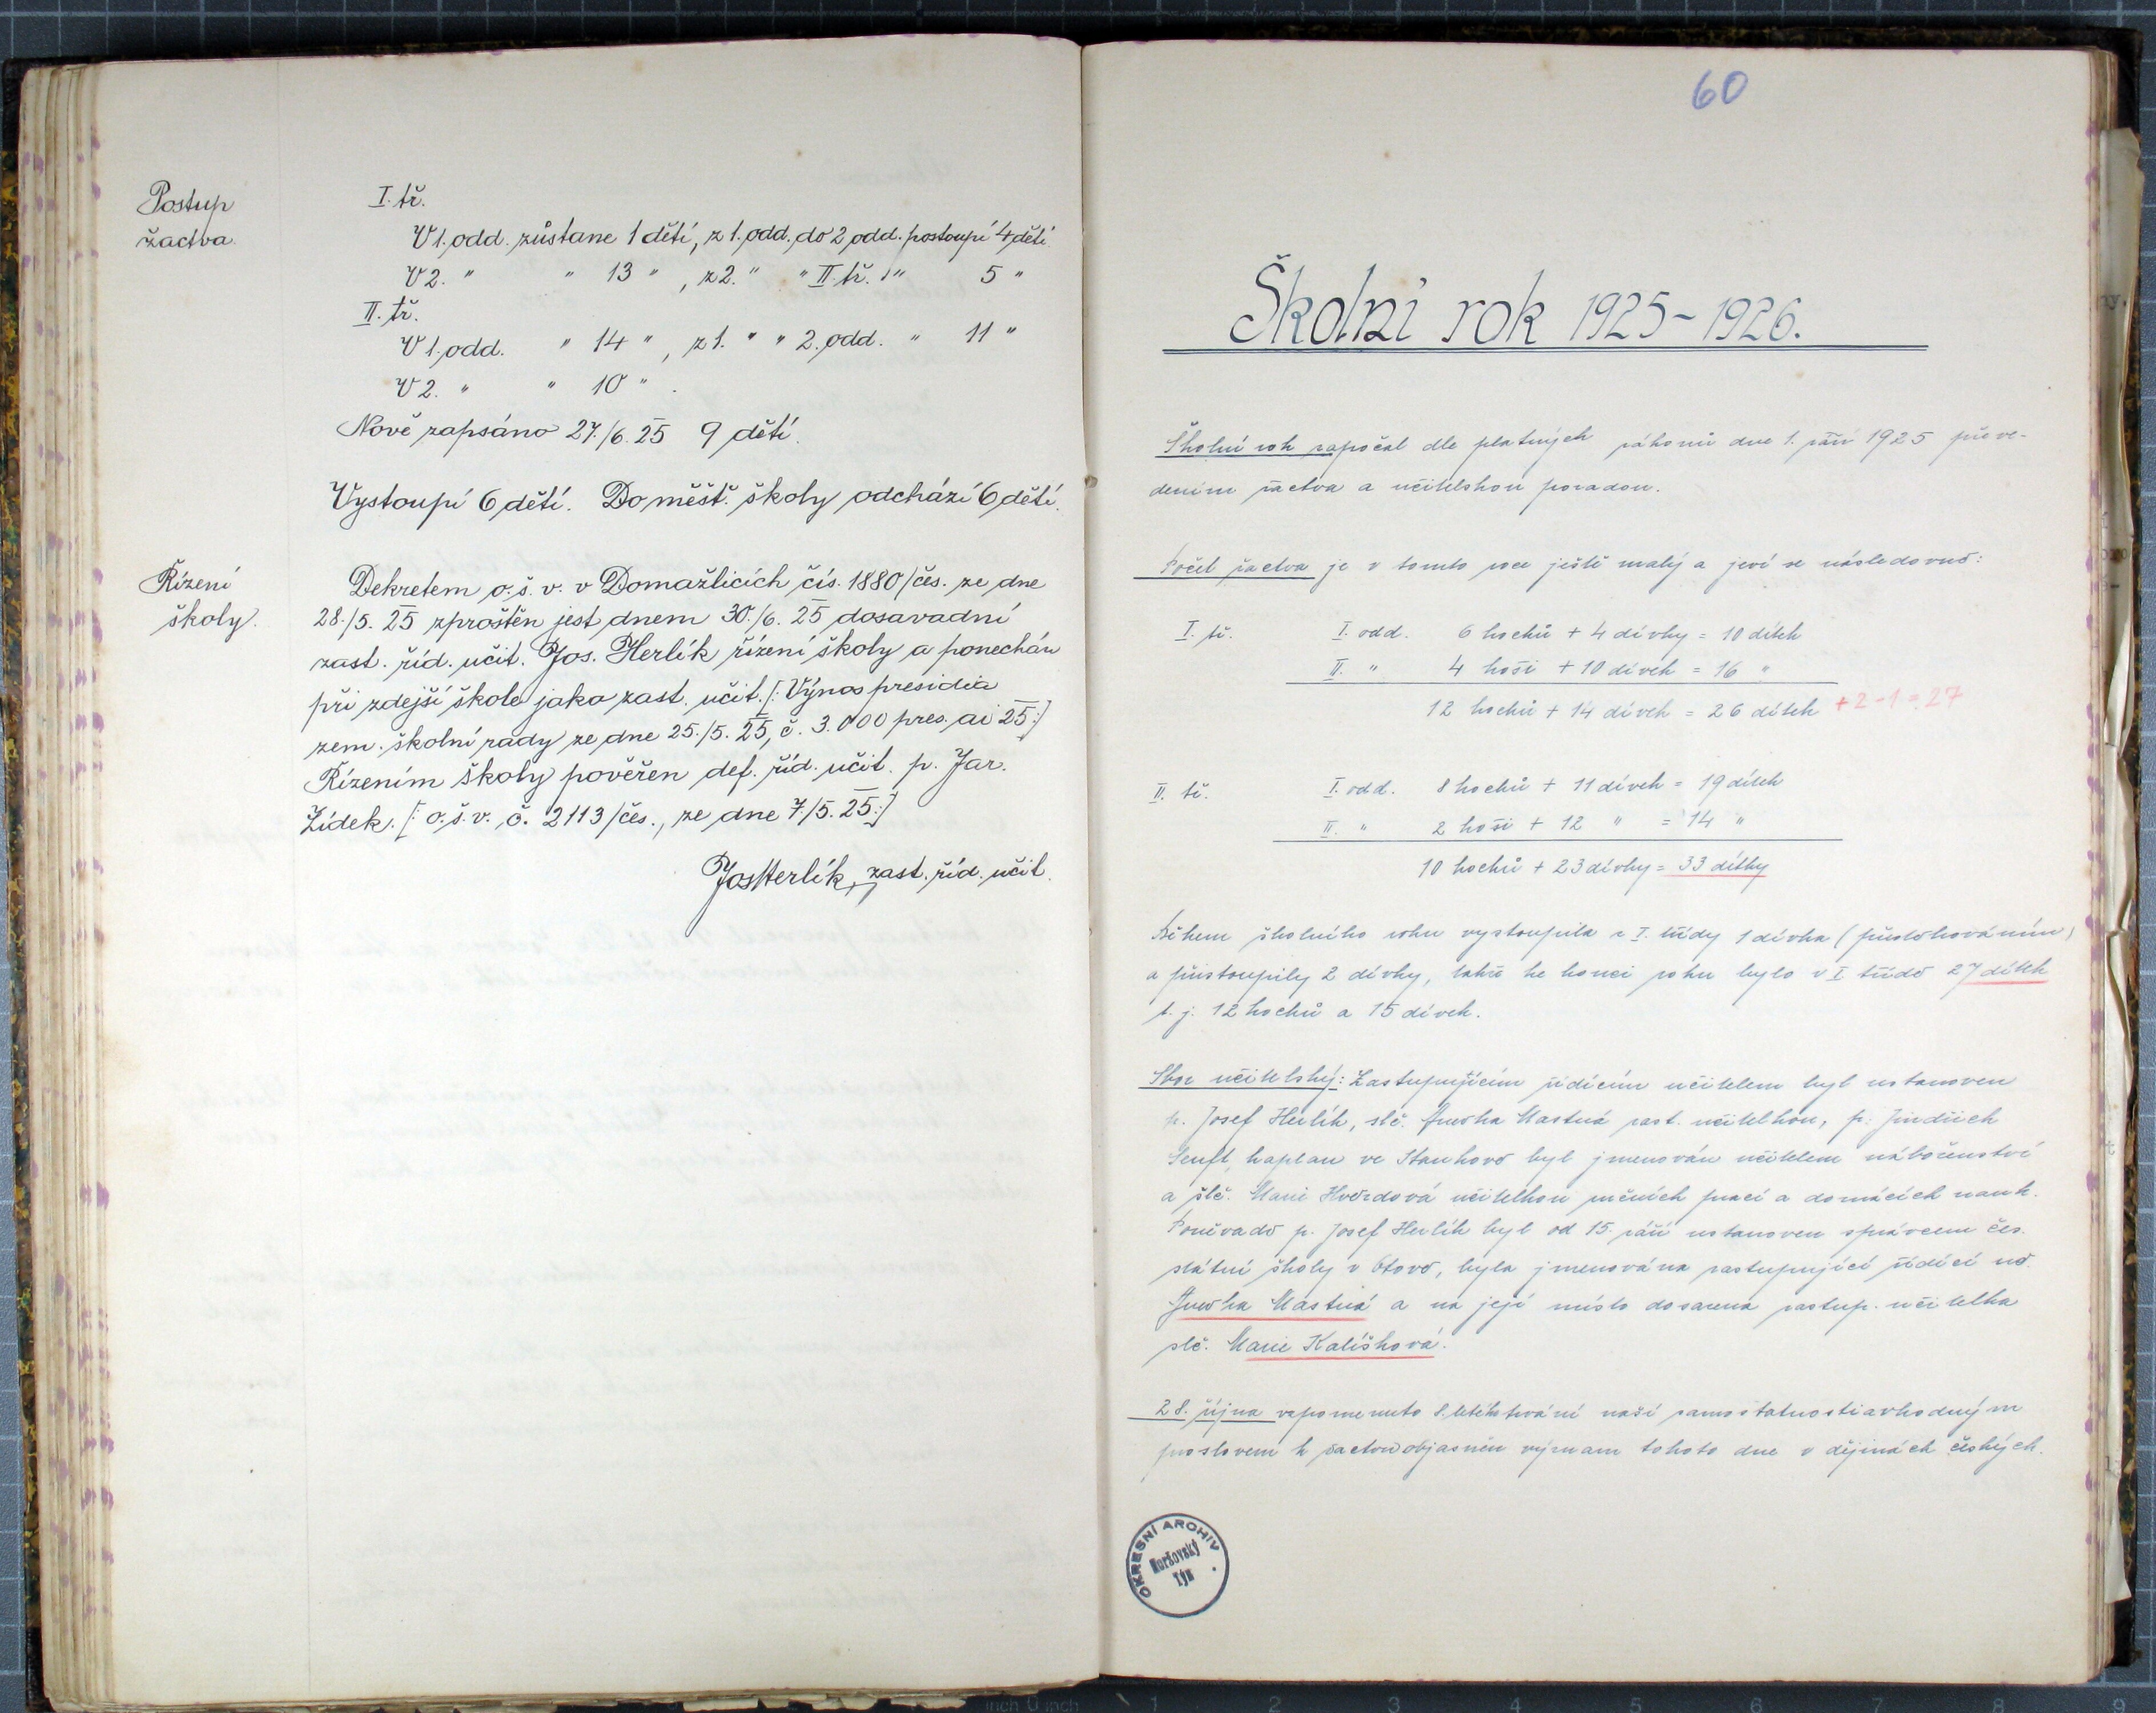 Postup
žactva.
I. tř.
V 1. odd. zůstane 1 dětí, z 1. odd. do 2 odd. postoupí 4 děti
V 2. " " 13 " , z 2. " " II. tř. " 5 "
II. tř.
V 1. odd. " 14 " , z 1. " " 2. odd. " 11 "
V 2. " " 10 " .
Nově zapsáno 27./6. 25 9 dětí.
Vystoupí 6 dětí. Do měšť. školy odchází 6 dětí.
Řízení
školy.
Dekretem o. š. v. v Domažlicích čís. 1880/čes. ze dne
28./5. 25 zproštěn jest dnem 30./6. 25 dosavadní
zast. říd. učit. Jos. Herlík řízení školy a ponechán
při zdejší škole jako zast. učit. [: Výnos presidia
zem. školní rady ze dne 25./5. 25, č. 3.000 pres. ai 25:]
Řízením školy pověřen def. říd. učit. p. Jar.
Žídek. [: o. š. v. č. 2113/čes., ze dne 7/5. 25:]
Jos Herlík, zast. říd. učit.
60
Školní rok 1925-1926.
Školní rok započal dle platných zákonů dne 1. září 1925 převe-
dením žactva a učitelskou poradou.
Počet žactva je v tomto roce ještě malý a jeví se následovně:
I. tř. I. odd. 6 hochů + 4 dívky = 10 dítek
II. " 4 hoši + 10 dívek = 16 "
12 hochů + 14 dívek = 26 dítek + 2 - 1 = 27
II. tř. I. odd. 8 hochů + 11 dívek = 19 dítek
II. " 2 hoši + 12 " = 14 "
10 hochů + 23 dívky = 33 dítky
Během školního roku vystoupila z I. třídy 1 dívka (přestěhováním)
a přistoupily 2 dívky, takže ke konci roku bylo v I třídě 27 dítek
t. j. 12 hochů a 15 dívek.
Sbor učitelský: Zastupujícím řídícím učitelem byl ustanoven
p. Josef Herlík, slč. Anežka Mastná zast. učitelkou, p. Jindřich
Senft, kaplan ve Staňkově byl jmenován učitelem náboženství
a slč. Marie Hvězdová učitelkou ručních prací a domácích nauk.
Poněvadž p. Josef Herlík byl od 15. září ustanoven správcem čes.
státní školy v Otově, byla jmenována zastupující řídící uč.
Anežka Mastná a na její místo dosazena zastup. učitelka
slč. Marie Kalíšková.
28. října vzpomenuto 8. letého trvání naší samostatnosti a vhodným
proslovem k žactvu objasněn význam tohoto dne v dějinách českých.
OKRESNÍ ARCHIV
Horšovský
Týn